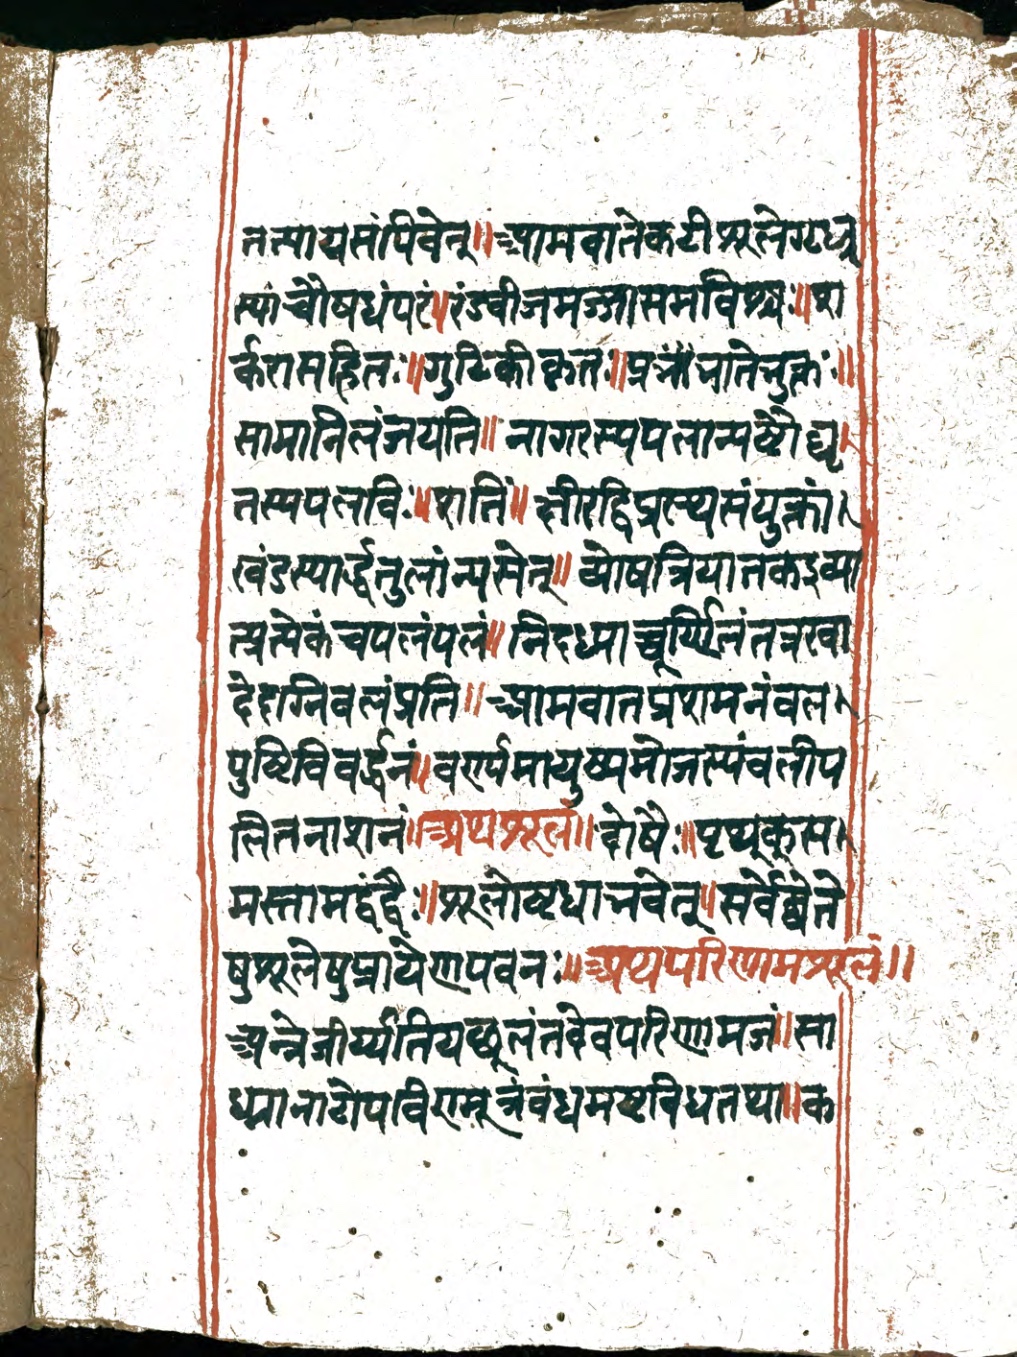 तत्पाययसंपिवेत्॥आमवातेकटीशूलेगृध्र
स्यांचौषधंपरं॥रंडवीजमज्जासमविश्वः॥श
र्करासहितः॥गुटिकीकृतः॥प्रभातेभुक्तः॥
सामानिलंजयति॥नागरस्यपलान्यष्टौघृ
तस्यपलविं॥शतिं॥क्षीरद्विप्रस्थसंयुक्तां
खंडस्यार्द्धतुलांन्यसेत्॥व्योषत्रिजातकद्रव्या
त्प्रत्येकंचपलंपलं॥निदध्याच्चूर्य्णितंतत्रखा
देदग्निवलंप्रति॥आमवातप्रशमनंवल
पुष्टिविवर्द्धनं॥वर्ण्यमायुष्यमोजस्यंवलीप
लितनाशनं॥अथशूलं॥दोषैः॥पृथक्स
मस्तामद्वंद्वैः॥शूलोष्टधाभवेत्॥सर्वेष्वेते
षुशूलेषुप्रायेणपवनः॥अथपरिणामशूलं॥
अन्नेजीर्य्यतियच्छूलंतदेवपरिणामजं॥सा
ध्मानाटोपविण्मूत्रंवंधमष्टविधतथा॥क